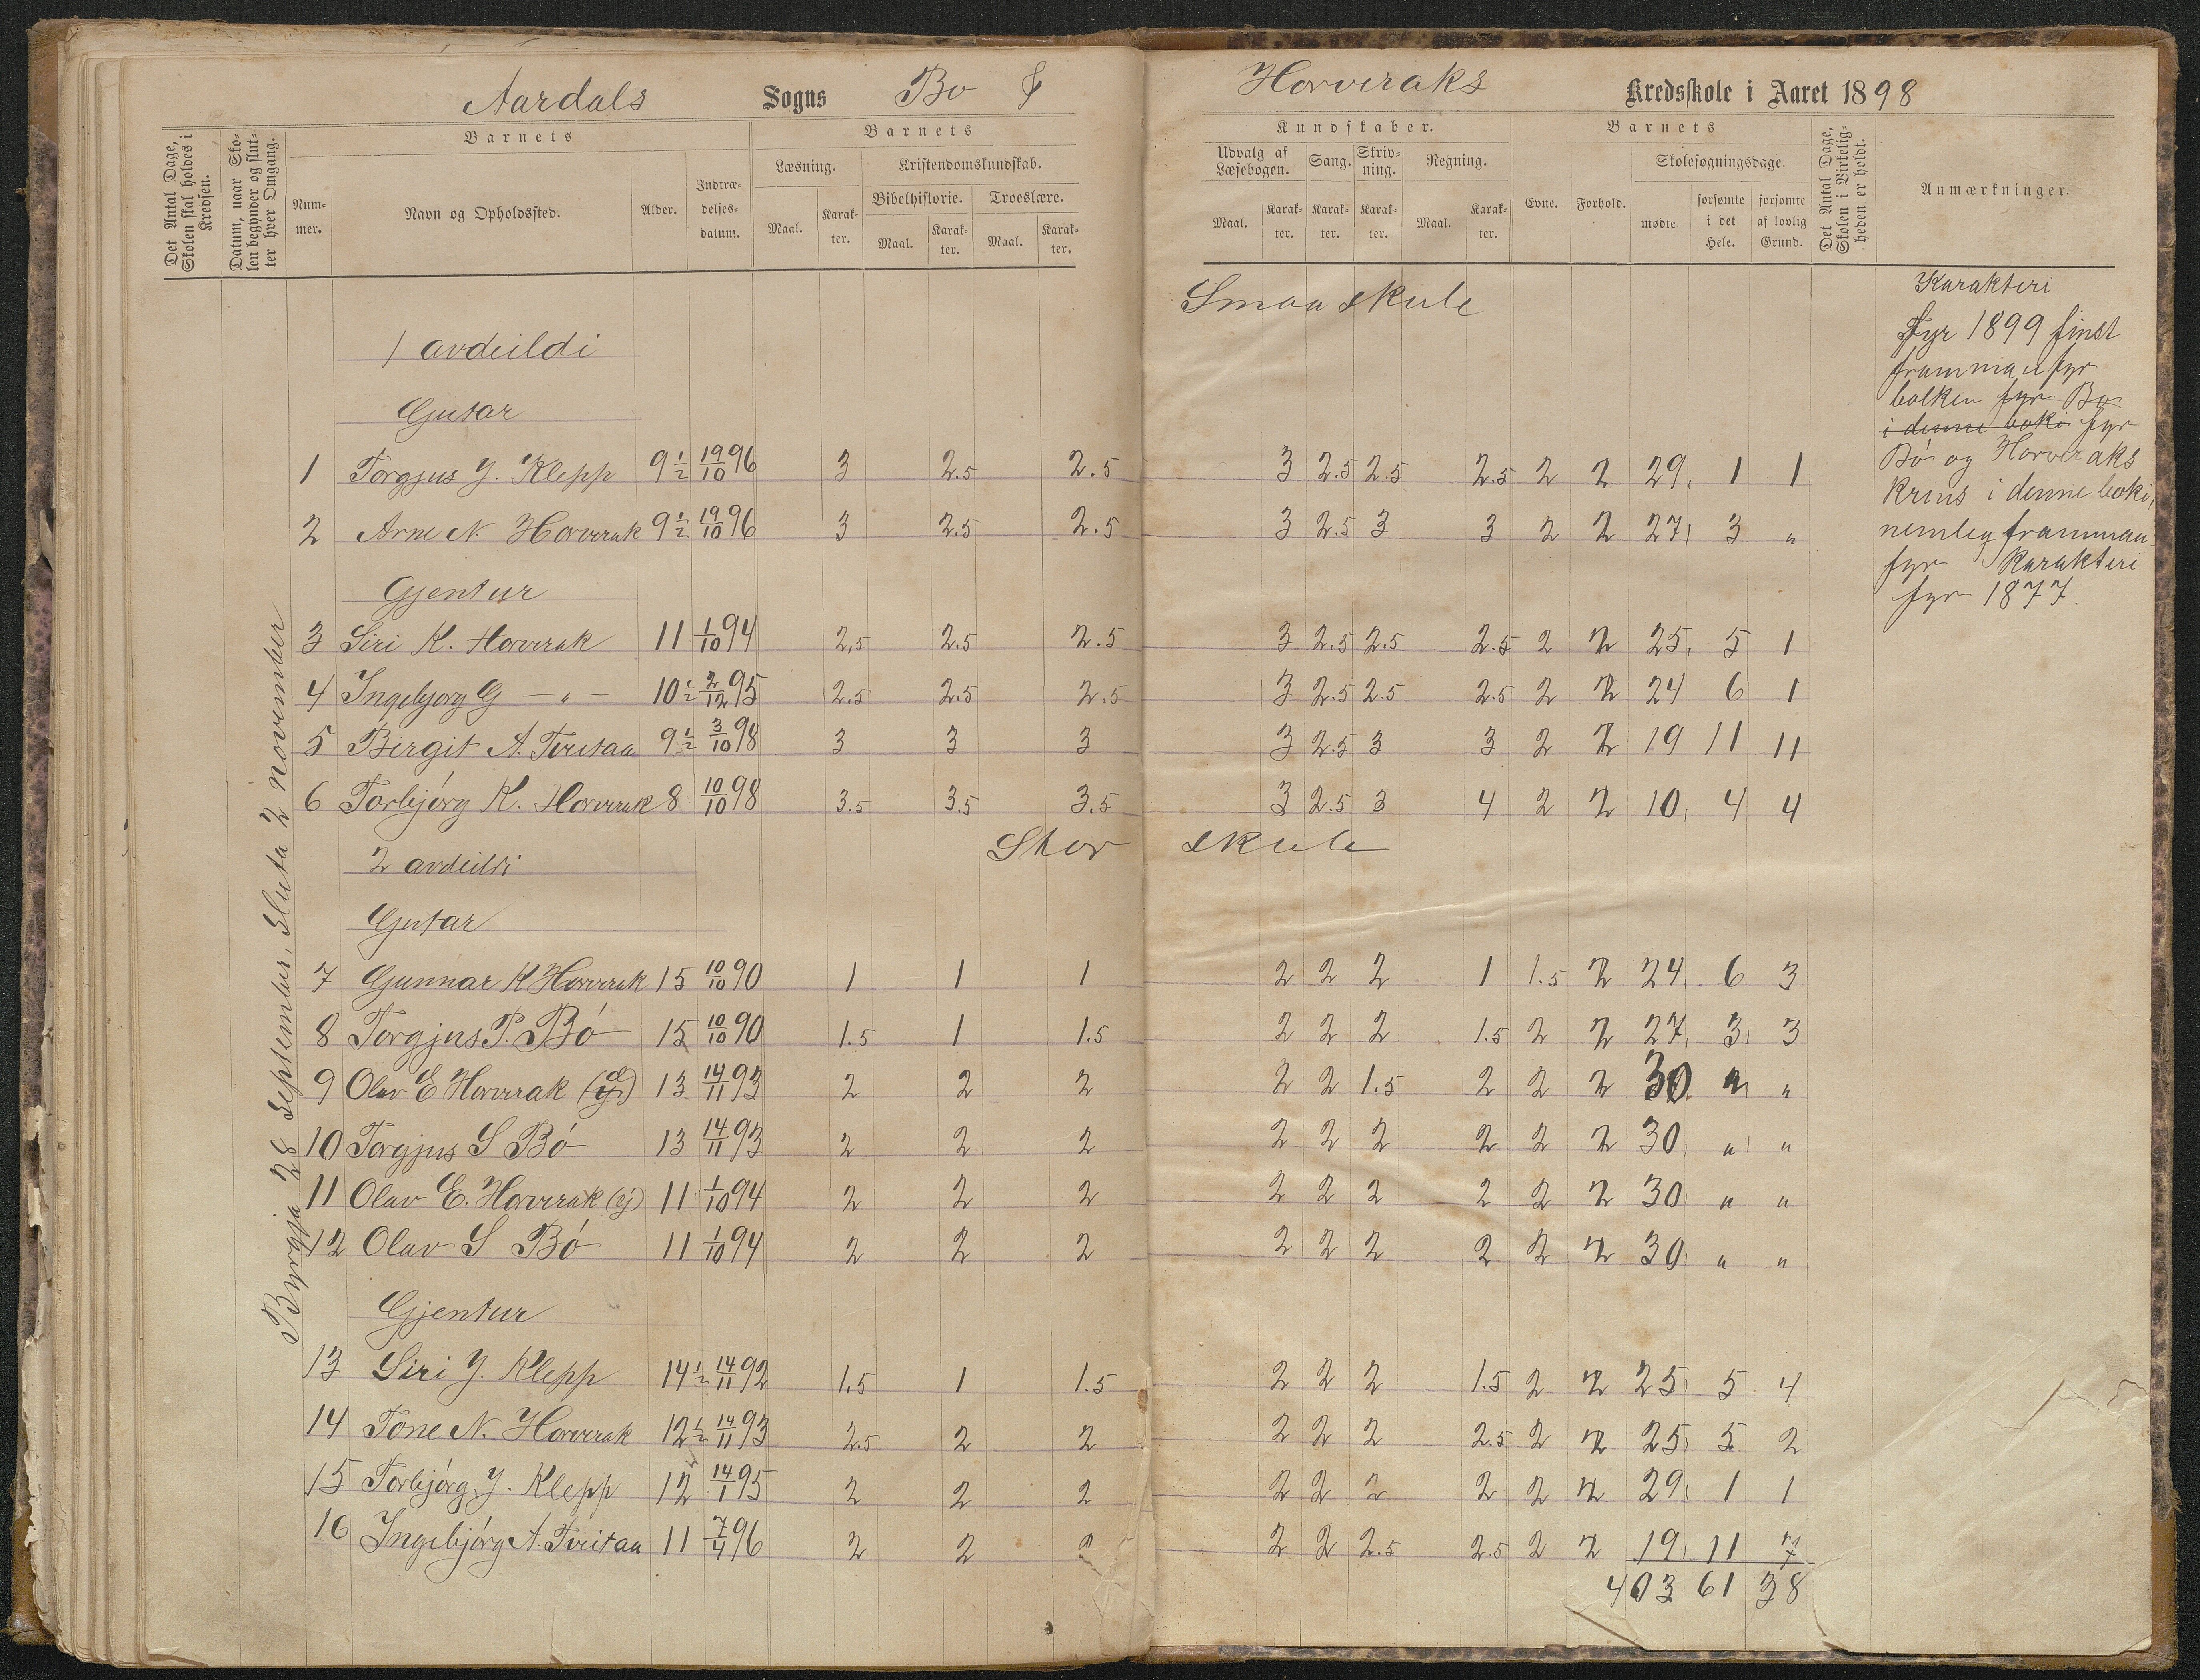 Aardals Sogns Bo &
Horveraks Kredsskole i Aaret 1898
Det Antal Dage, Skolen skal holdes i Kredsen.
Datum, naar Skolen begynder og slutter hver Omgang.
Barnets
Nummer.
Navn og Opholdssted.
Alder.
Indtrædelsesdatum.
Barnets
Læsning.
Maal.
Karakter.
Kristendomskundskab.
Bibelhistorie.
Maal.
Karakter.
Troeslære.
Maal.
Karakter.
Kundskaber.
Udvalg af Læsebogen.
Maal.
Karakter.
Sang.
Karakter.
Skrivning.
Karakter.
Regning.
Maal.
Karakter.
Barnets
Evne.
Forhold.
Skolesøgningsdage.
mødte
forsømte i det Hele.
forsømte af lovlig Grund.
Det Antal Dage, Skolen i Virkeligheden er holdt.
Anmærkninger.
Byrgja 28 September, Sluta 2 november
Smaaskule
1 avdeildi
Gutar
1 Torgjus J. Klepp 9 1/2 19/10 96 3 2.5 2.5 3 2.5 2.5 2.5 2 2 29 1 1
2 Arne N. Horverak 9 1/2 19/10 96 3 2.5 2.5 3 2.5 3 3 2 2 27 3 "
Gjentur
3 Siri K. Horverak 11 1/10 94 2,5 2.5 2.5 3 2.5 2.5 2.5 2 2 25 5 1
4 Ingebjorg G — " — 10 1/2 2/12 95 2.5 2.5 2.5 3 2.5 2.5 2.5 2 2 24 6 1
5 Birgit A. Tveitaa 9 1/2 3/10 98 3 3 3 3 2.5 3 3 2 2 19 11 11
6 Torbjórg K. Horverak 8 10/10 98 3.5 3.5 3.5 3 2.5 3 4 2 2 10 4 4
Stor skule
2 avdeildi
Gutar
7 Gunnar K Horverak 15 10/10 90 1 1 1 2 2 2 1 1.5 2 24 6 3
8 Torgjus P. Bó 15 10/10 90 1.5 1 1.5 2 2 2 1.5 2 2 27 3 3
9 Olav E Horverak 13 14/11 93 2 2 2 2 2 1.5 2 2 2 30 " "
10 Torgjus S Bó 13 14/11 93 2 2 2 2 2 2 2 2 2 30 " "
11 Olav E. Horverak (y) 11 1/10 94 2 2 2 2 2 2 2 2 2 30 " "
12 Olav S Bó 11 1/10 94 2 2 2 2 2 2 2 2 2 30 " "
Gjentur
13 Siri J. Klepp 14 1/2 14/11 92 1.5 1 1.5 2 2 2 1.5 2 2 25 5 4
14 Tone N. Horverak 12 1/2 14/11 93 2.5 2 2 2 2 2 2.5 2 2 25 5 2
15 Torbjórg J. Klepp 12 14/1 95 2 2 2 2 2 2 2 2 2 29 1 1
16 Ingebjórg A. Tveitaa 11 7/4 96 2 2 2 2 2 2.5 2.5 2 2 19 11 7
403 61 38
Karakteri
fyr 1899 finst
frammanfyr
bolken fyr Bo
i denne boki fyr
Bó og Horveraks
Krins i denne boki,
nemleg framman-
fyr Karakteri
fyr 1877.